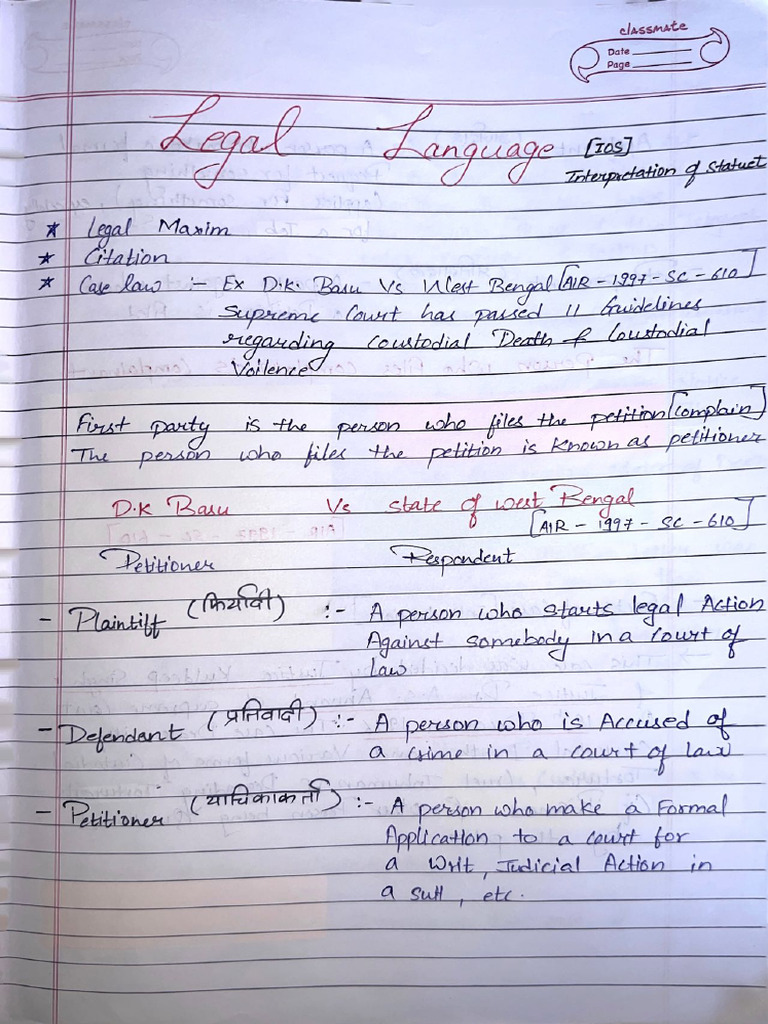 classmate
Date
Page
Legal Language [IOS]
Interpretation of Statuet
* Legal Maxim
* Citation
* Case law :- Ex D.K. Basu Vs West Bengal [AIR - 1997 - SC - 610]
Supreme Court has passed 11 Guidelines
regarding Coustodial Death & Coustodial
Voilence
First party is the person who files the petition [Complain]
The person who files the petition is known as petitioner
D.K Basu Vs State of West Bengal
[AIR - 1997 - SC - 610]
Petitioner Respondent
- Plaintiff (फिर्यादी) :- A person who starts legal Action
Against somebody in a Court of
law
- Defendant (प्रतिवादी) :- A person who is Accused of
a crime in a court of law
- Petitioner (याचिकाकर्ता) :- A person who make a Formal
Application to a court for
a writ, Judicial Action in
a suit, etc.